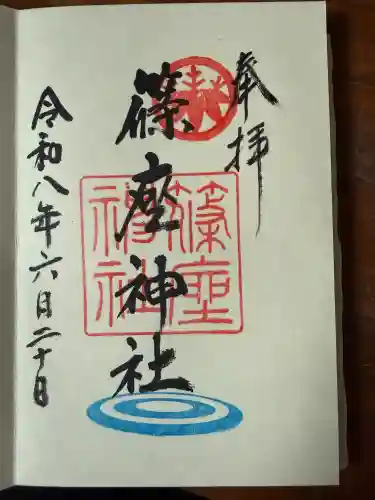 奉拝
篠座神社
篠座
神社
令和八年六日二十日